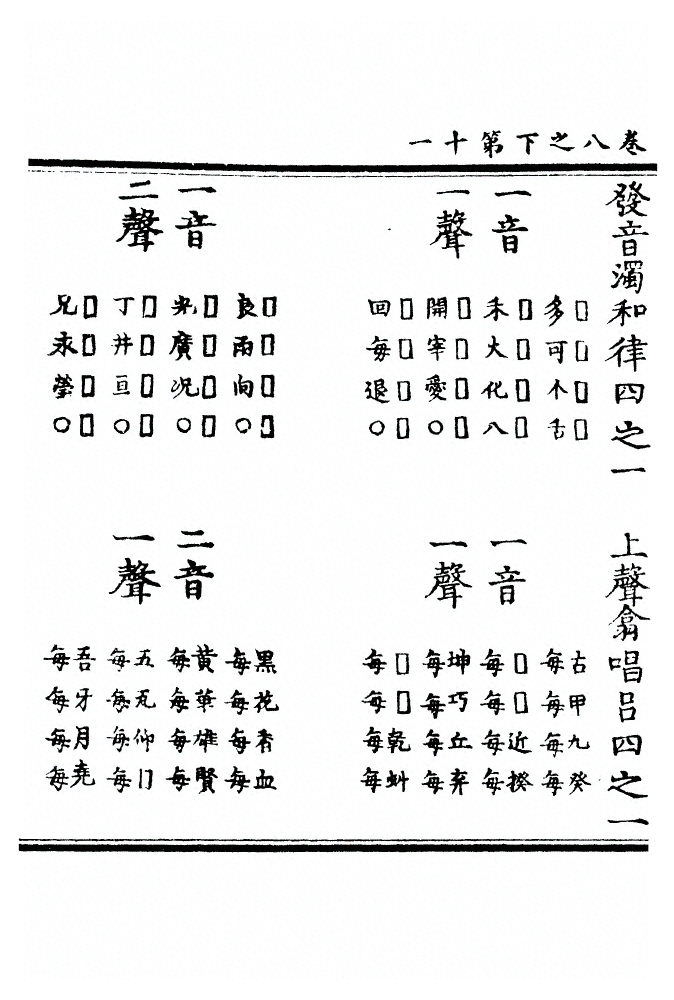 卷八之下第十一
發音濁和律四之一
上聲翕唱呂四之一
一音
一聲
□多 □可 □个 □舌
□禾 □火 □化 □八
□開 □宰 □愛 □○
□回 □每 □退 □○
一音
二聲
□良 □兩 □向 □○
□光 □廣 □况 □○
□丁 □井 □亘 □○
□兄 □永 □瑩 □○
一音
一聲
古每 甲每 九每 癸每
□每 □每 近每 揆每
坤每 巧每 丘每 弃每
□每 □每 乾每 虯每
二音
一聲
黑每 花每 香每 血每
黃每 華每 雄每 賢每
五每 瓦每 仰每 □每
吾每 牙每 月每 堯每